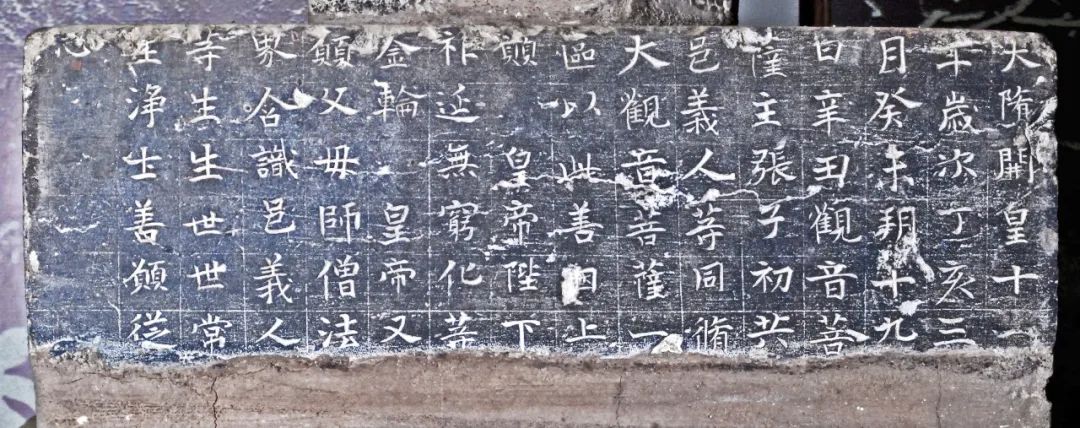 大隋開皇十一
年歲次丁亥三
月癸未朔十九
日辛丑觀音菩
薩主張子初共
邑義人等同脩
大觀音菩薩一
區以此善因上
願 皇帝陛下
祚延無窮化等
金輪 皇帝又
願父母師僧法
界含識邑義人
等生生世世常
生淨土善願從
心